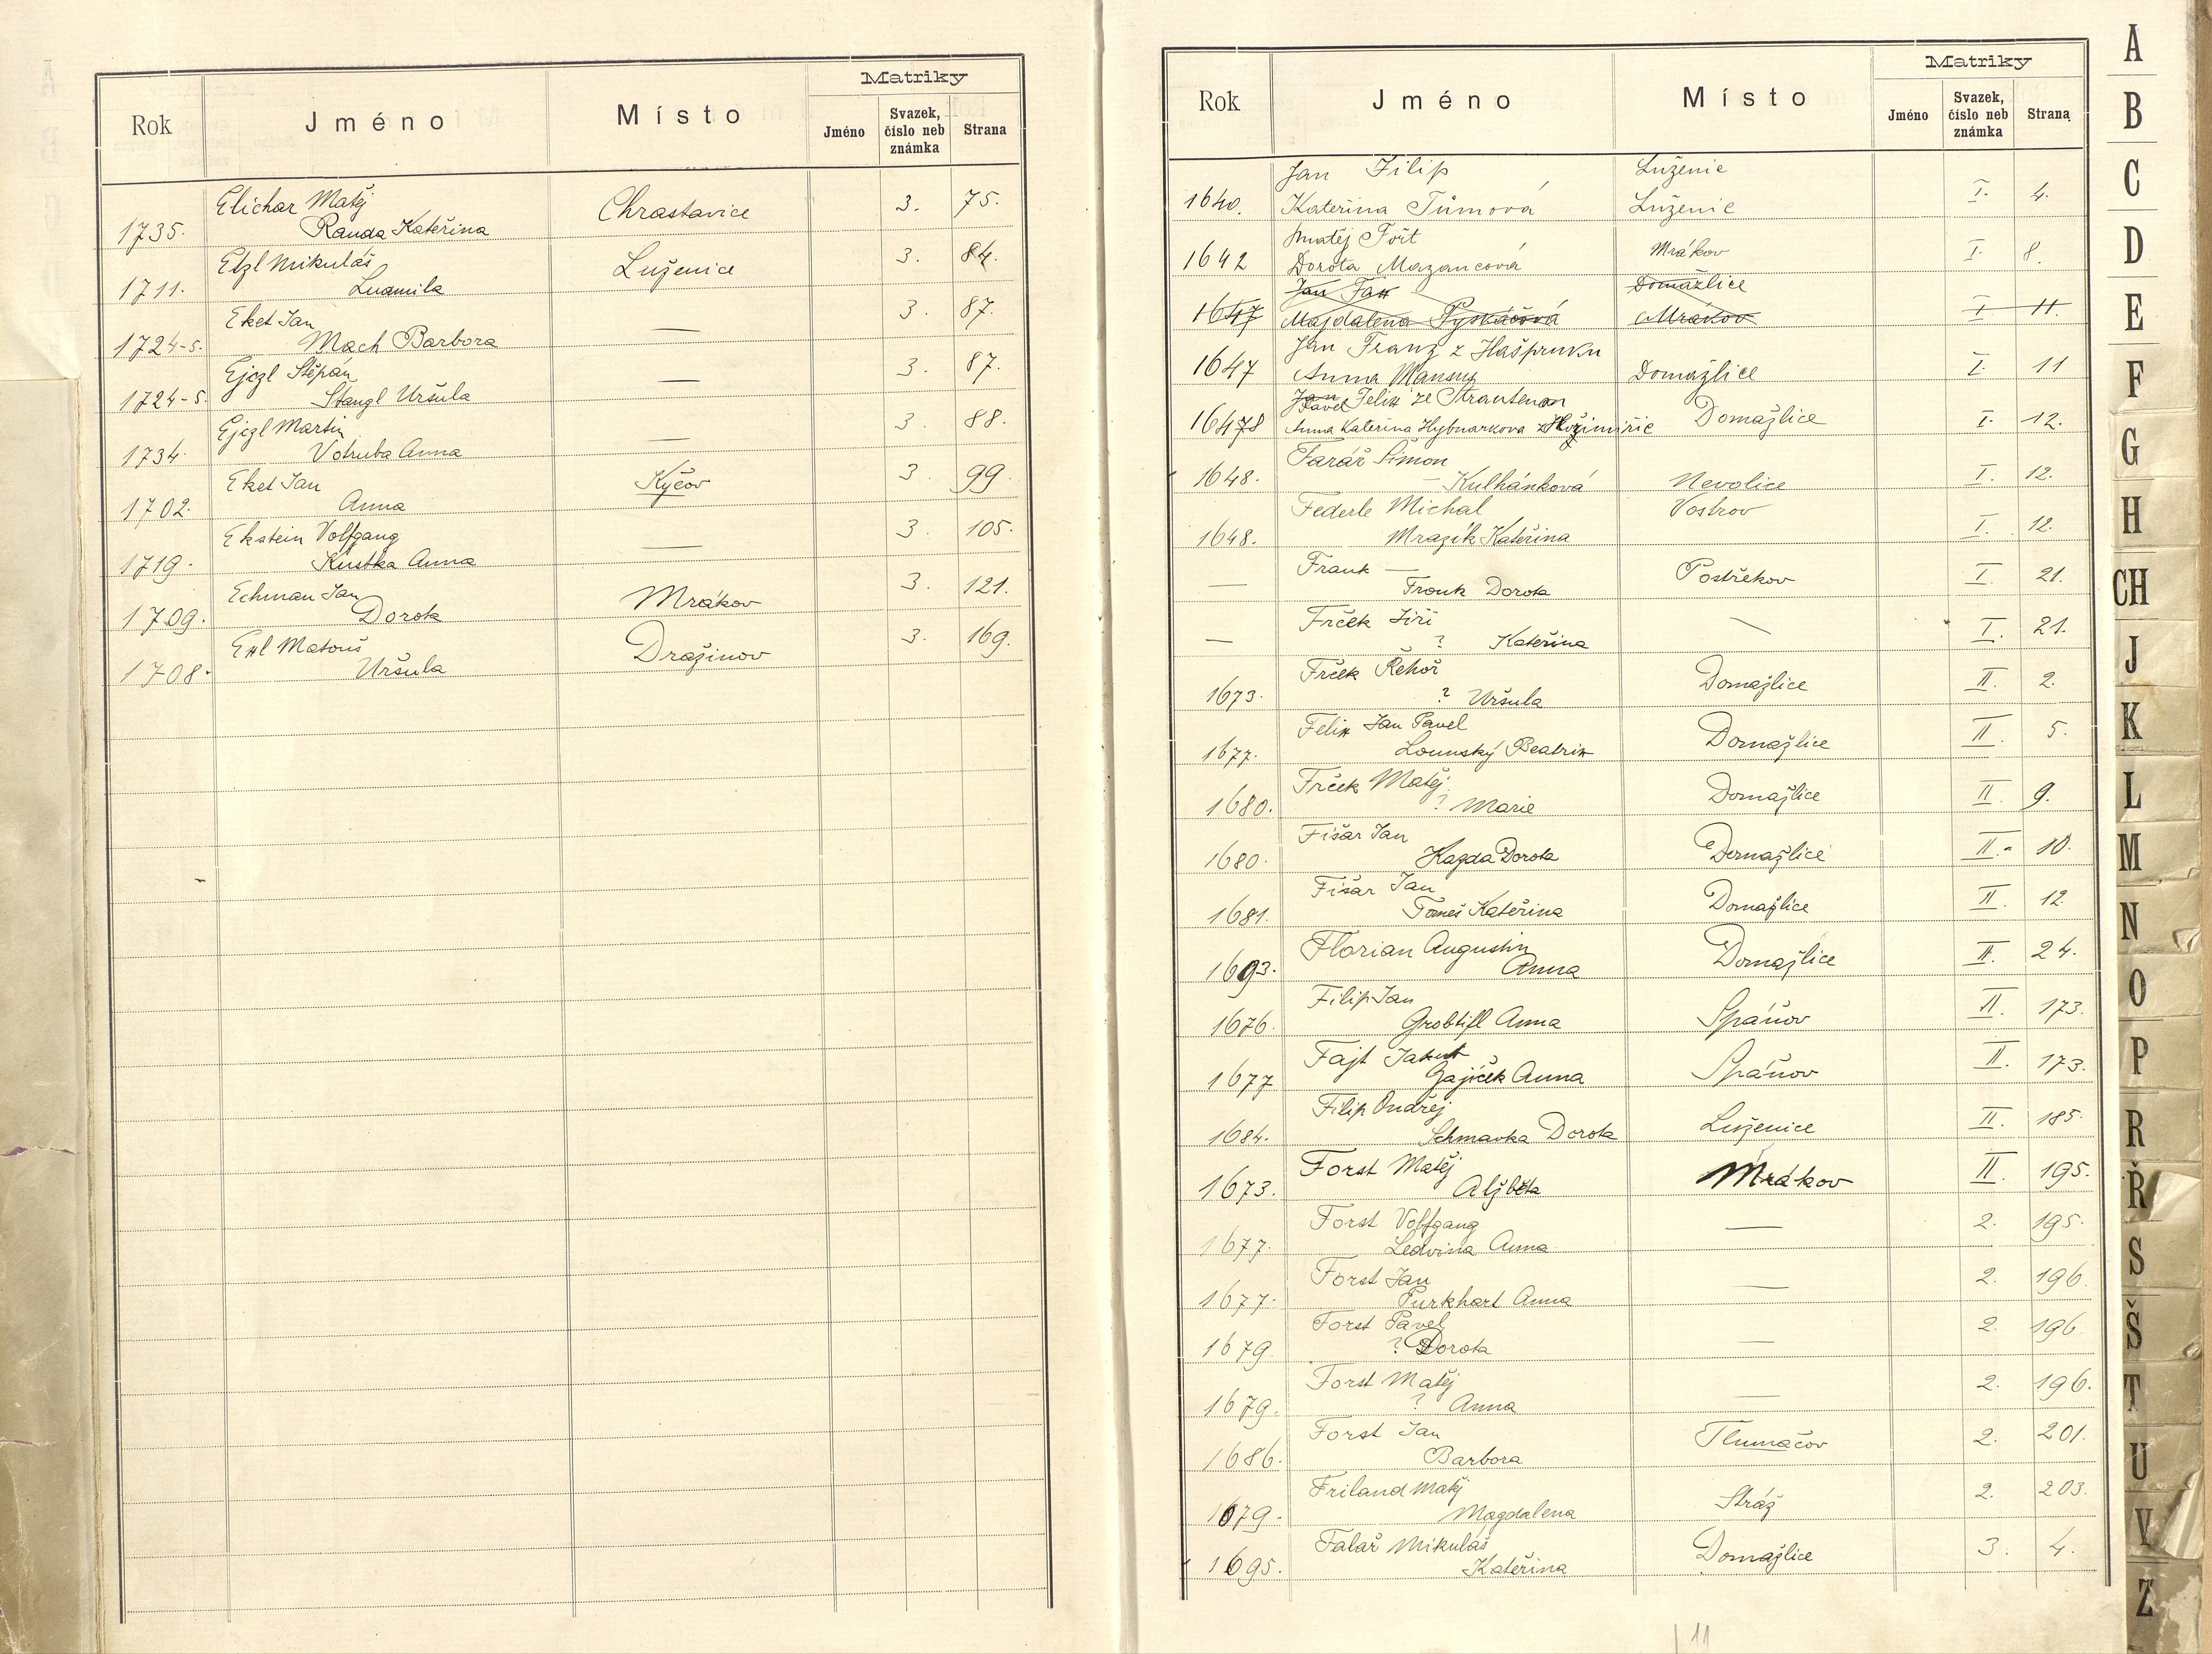 Rok Jméno Místo Matriky
Jméno Svazek, číslo neb známka Strana
Elichar Matěj
1735. Randa Kateřina Chrastavice 3. 75.
Etzl Mikuláš
1711. Ludmila Luženice 3. 84.
Eket Jan
1724-5. Mach Barbora — 3. 87.
Ejczl Štěpán
1724-5. Stangl Uršula — 3. 87.
Ejczl Martin
1734. Votruba Anna — 3. 88.
Eket Jan
1702. Anna Kyčov 3. 99.
Ekstein Volfgang
1719. Kustka Anna — 3. 105.
Echman Jan
1709. Dorota Mrákov 3. 121.
Exl Matouš
1708. Uršula Dražinov 3. 169.
Rok Jméno Místo Matriky
Jméno Svazek, číslo neb známka Strana
Jan Filip Luženic
1640. Kateřina Tůmová Luženic I. 4.
Matěj Fořt
1642 Dorota Mazancová Mrákov I. 8.
Jan Fax Domažlice
1647 Majdalena Pyskáčová Mrákov I 11.
Jan Franz z Hašpruku
1647 Anna Mansup Domažlice I. 11
Jan Pavel Felix ze Strautenon
16478 Anna Katerina Hybnarkova z Domažlice I. 12.
Farář Šimon
1648. — Kulhánková Nevolice I. 12.
Federle Michal Vostrov
1648. Mrazík Kateřina I. 12.
Frank —
— Frouk Dorota Postřekov I. 21.
Frček Jiří
— ? Kateřina — I. 21.
Frček Řehoř
1673. ? Uršula Domažlice II. 2.
Felix Jan Pavel
1677. Lounský Beatrix Domažlice II. 5.
Frček Matěj
1680. ? Marie Domažlice II. 9.
Fišar Jan
1680. Kazda Dorota Domažlice II. 10.
Fišar Jan
1681. Tomeš Kateřina Domažlice II. 12
Florian Augustin
1693. Anna Domažlice II. 24.
Filip Jan
1676. Grobtifl Anna Spáňov II. 173.
Fajt Jakub
1677 Gajiček Anna Spáňov II. 173.
Filip Ondřej
1684. Schmavka Dorota Luženice II. 185.
Forst Matěj
1673. Alžběta Mrákov II 195.
Forst Volfgang
1677. Ledvina Anna — 2. 195.
Forst Jan
1677. Purkhart Anna — 2. 196.
Forst Pavel
1679. ? Dorota — 2. 196.
Forst Matěj
1679. ? Anna — 2. 196.
Forst Jan
1686. Barbora Tlumačov 2. 201.
Friland Matěj
1679. Magdalena Stráž 2. 203.
Falař Mikuláš
1695. Kateřina Domažlice 3. 4.
11
A
B
C
D
E
F
G
H
CH
J
K
L
M
N
O
P
R
Ř
S
Š
T
U
V
Z